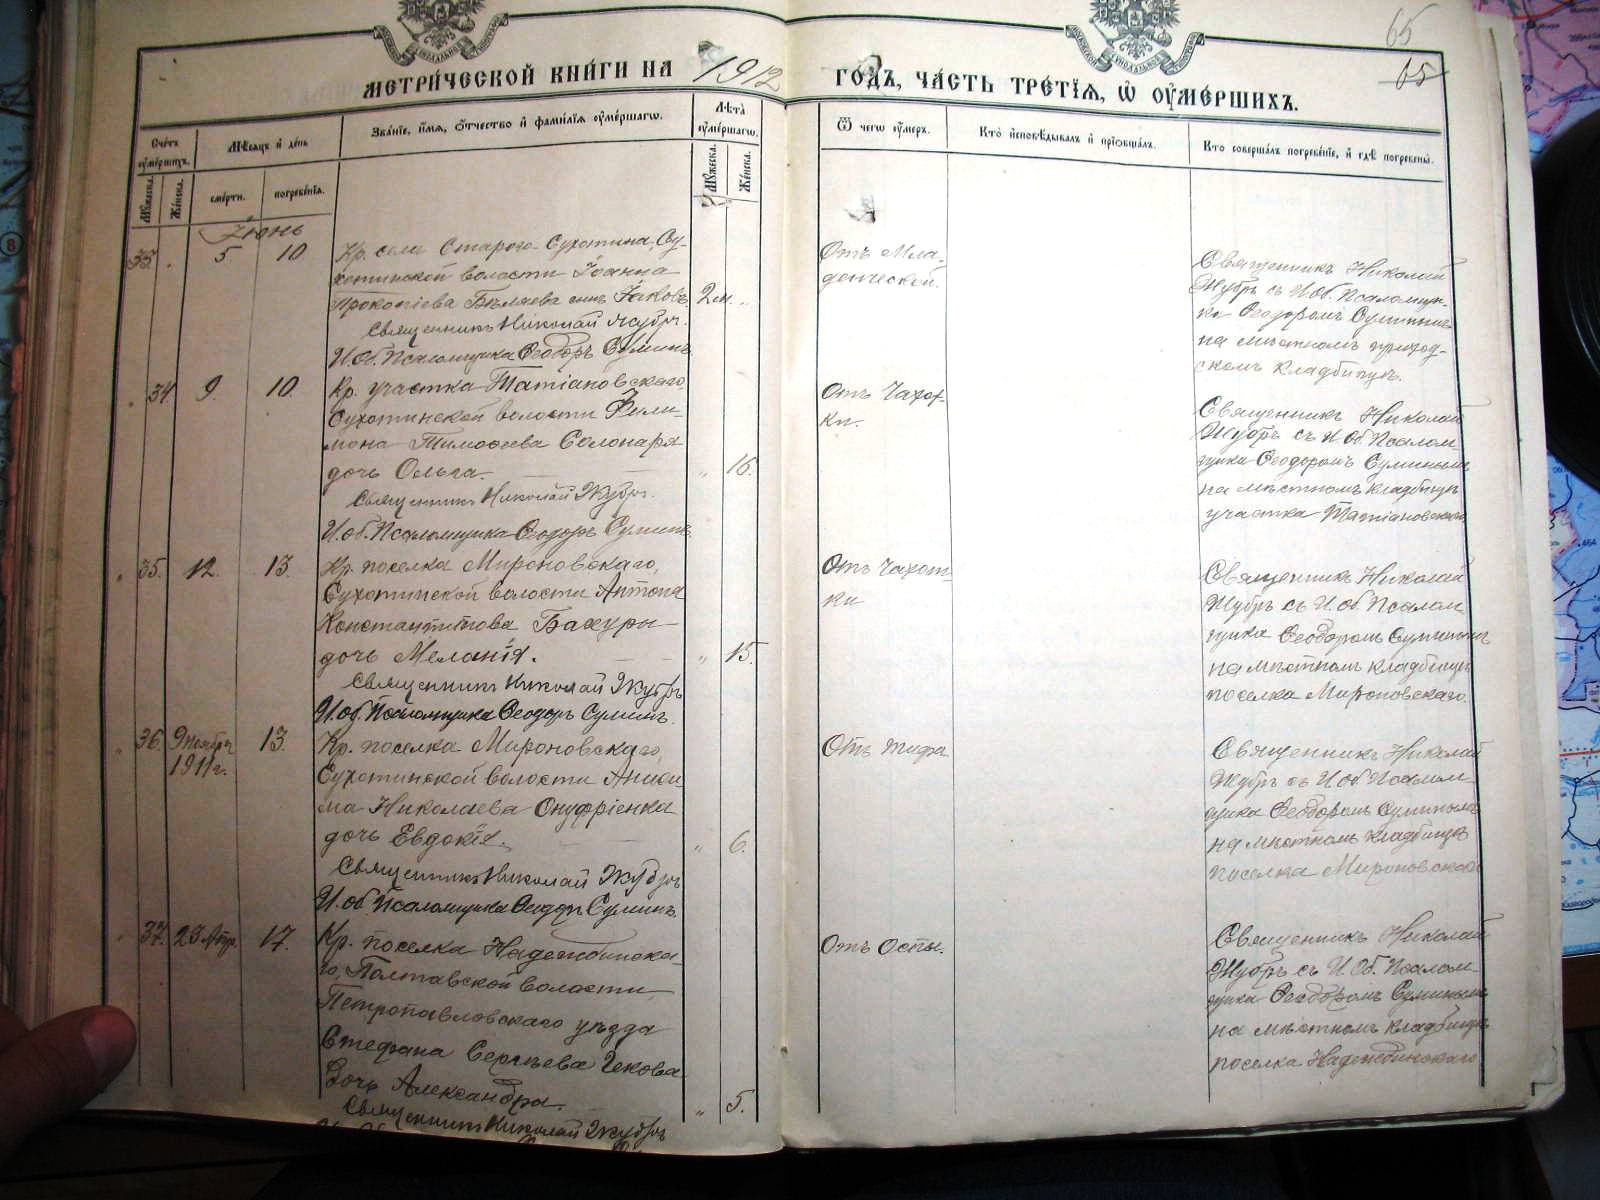 65
65
МЕТРИ́ЧЕСКОЙ КНИ́ГИ НА 1912 ГОДЪ, ЧА́СТЬ ТРЕ́ТІѦ, Ѡ ОУМЕ́РШИХЪ.
Сче́тъ оуме́ршихъ.
Мѣ́сяцъ и де́нь
Зва́нїе, и́мѧ, о́тчество и фами́лїѧ оуме́ршагѡ.
Лѣ́та оуме́ршагѡ.
Ѿ чегѡ̀ оу́меръ.
Кто̀ исповѣ́дывалъ и прїобща́лъ.
Кто соверша́лъ погребе́нїе, и гдѣ̀ погребены̀.
Мꙋ́жеска.
Же́нска.
сме́рти.
погребе́нїѧ.
Мꙋ́жеска.
Же́нска.
Іюнь
33. 5 10
Кр. села Старого-Сухотина, Су-
хотинской волости Іоанна
Прокопіева Бѣляева сынъ Іаковъ 2 м.
Священникъ Николай Жубръ.
И. Об. Псаломщика Ѳеодоръ Суминъ
Отъ Мла-
денческой.
Священникъ Николай
Жубръ съ И. Об. Псаломщи-
ка Ѳеодоромъ Суминымъ
на мѣстномъ приход-
скомъ кладбищѣ.
34 9. 10.
Кр. участка Татіановскаго,
Сухотинской волости Фили-
мона Тимоѳеева Солонаря
дочь Ольга. 16.
Священникъ Николай Жубръ.
И. об. Псаломщика Ѳеодоръ Суминъ
Отъ Чахот-
ки.
Священникъ Николай
Жубръ съ И. Об. Псалом-
щика Ѳеодоромъ Суминымъ
на мѣстномъ кладбищѣ
участка Татіановскаго
35. 12. 13.
Кр. поселка Мироновскаго,
Сухотинской волости Антона
Константинова Бахуры
дочь Меланія. 15.
Священникъ Николай Жубръ
И. об. Псаломщика Ѳеодоръ Суминъ.
Отъ Чахот-
ки
Священникъ Николай
Жубръ съ И. об. Псалом-
щика Ѳеодоромъ Суминымъ
на мѣстномъ кладбищѣ
поселка Мироновскаго.
36. 9 ноября 13.
1911 г.
Кр. поселка Мироновскаго,
Сухотинской волости Аниси-
ма Николаева Онуфріенка
дочь Евдокія. 6.
Священникъ Николай Жубръ
И. об. Псаломщика Ѳеодоръ Суминъ
Отъ тифа
Священникъ Николай
Жубръ съ И. об. Псалом-
щика Ѳеодоромъ Суминымъ
на мѣстномъ кладбищѣ
поселка Мироновскаго
37. 28 Апр. 17.
Кр. поселка Надеждинска-
го, Полтавской волости,
Петропавловскаго уѣзда
Стефана Сергѣева Чекова
дочь Александра. 5.
Священникъ Николай Жубръ
Отъ оспы.
Священникъ Николай
Жубръ съ И. Об. Псалом-
щика Ѳеодоромъ Суминымъ
на мѣстномъ кладбищѣ
поселка Надеждинскаго